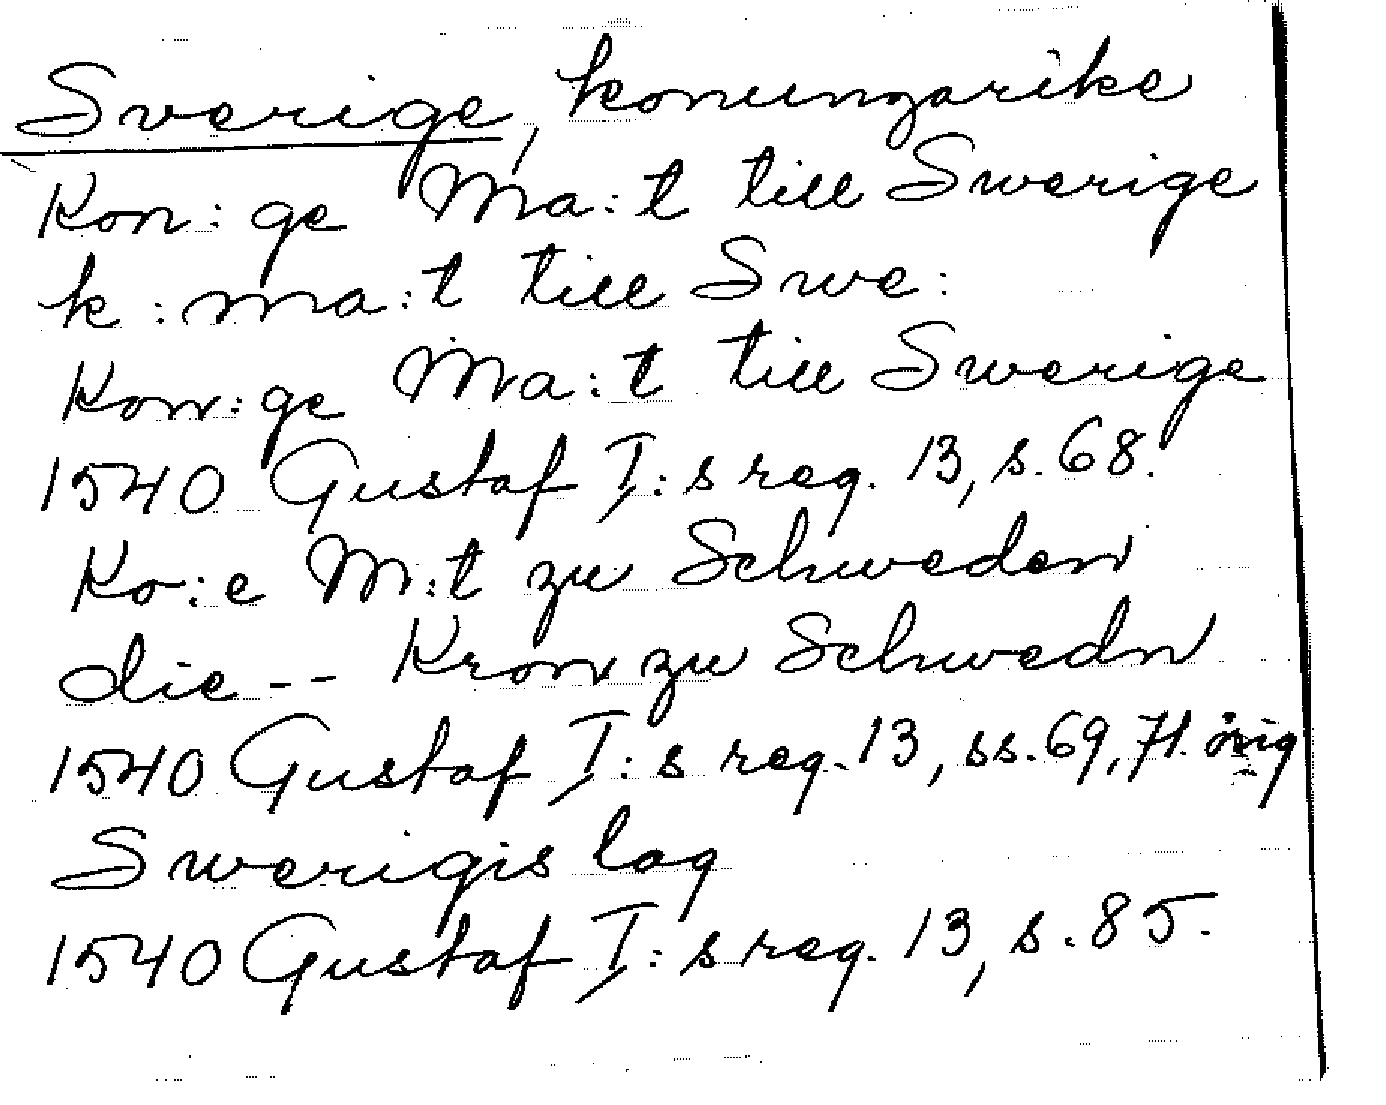 Sverige, konungarike
Kon:ge Ma:t till Swerige
k:ma:t till Swe:
Kon:ge Ma:t till Swerige
1540 Gustaf I:s reg. 13, s. 68.
Ko:e M:t zu Schweden
die -- Kron zu Schwedn
1540 Gustaf I:s reg. 13, ss. 69, 71.
Swerigis lag
1540 Gustaf I:s reg. 13, s. 85.